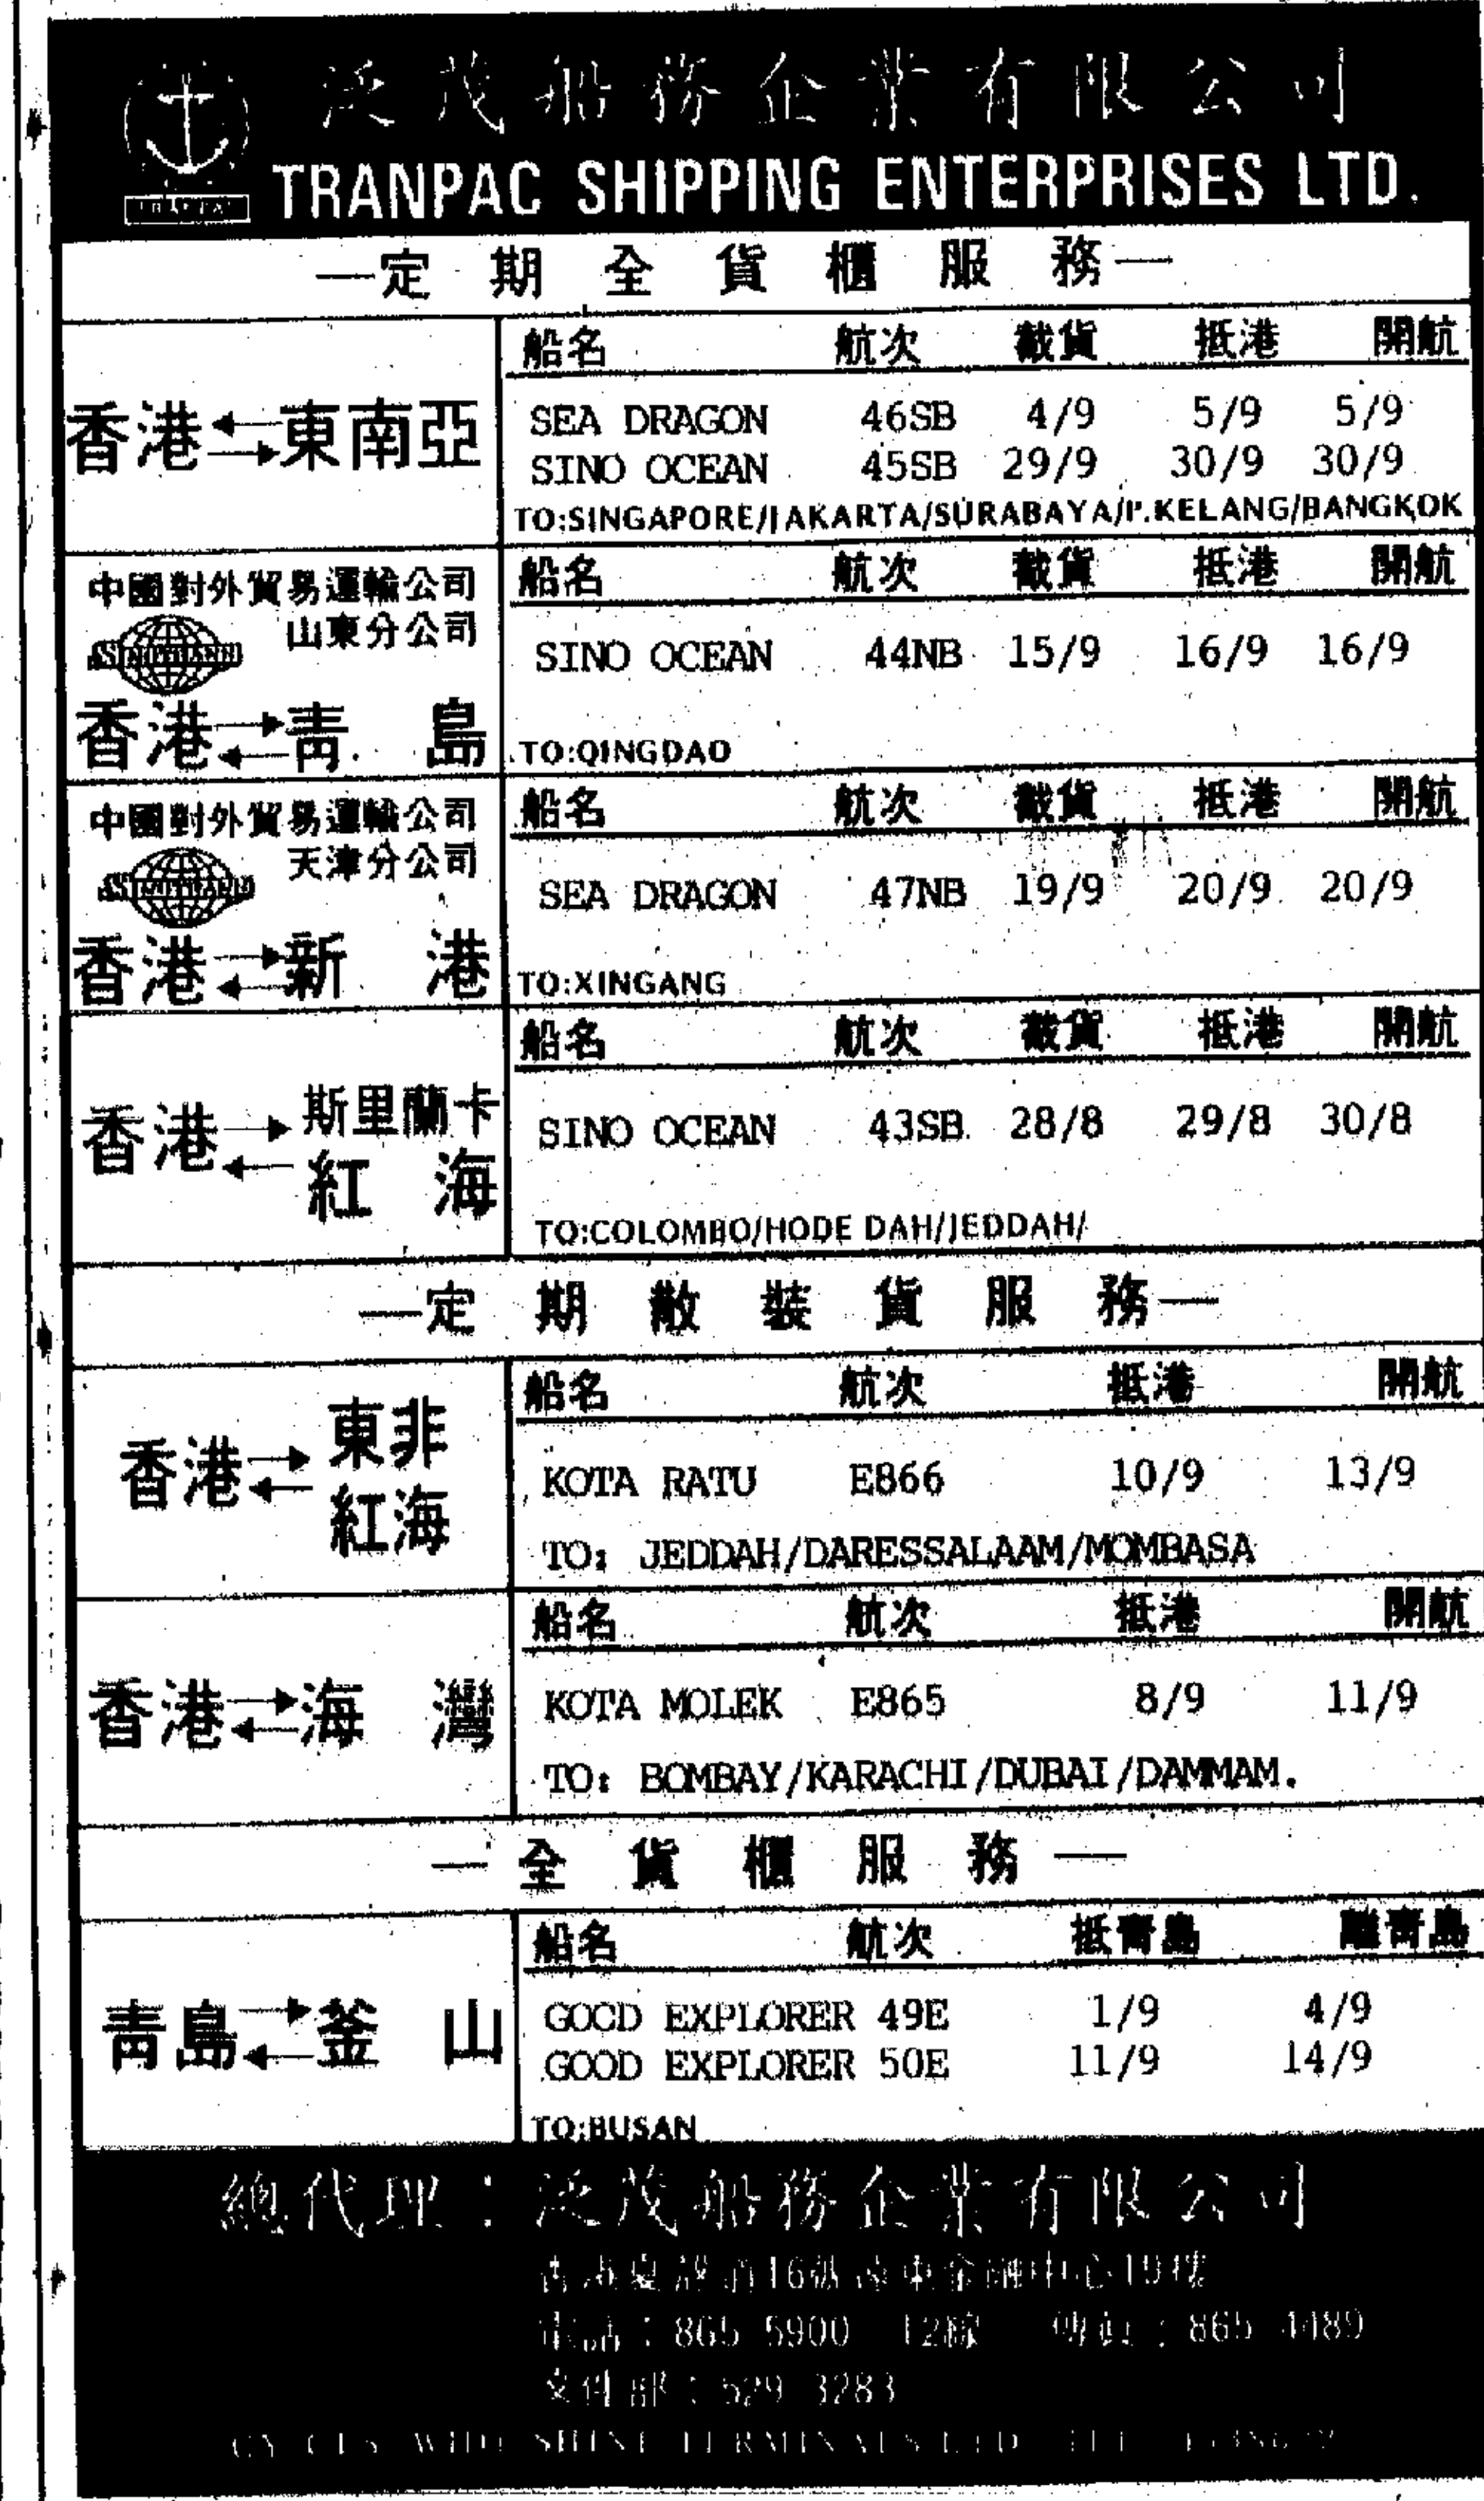 泛茂船務企業有限公司
TRANPAC SHIPPING ENTERPRISES LTD.
—定期全貨櫃服務—
香港 東南亞
船名 航次 截貨 抵港 開航
SEA DRAGON 46SB 4/9 5/9 5/9
SINO OCEAN 45SB 29/9 30/9 30/9
TO:SINGAPORE/JAKARTA/SURABAYA/P.KELANG/BANGKOK
中國對外貿易運輸公司
山東分公司
香港 青島
船名 航次 截貨 抵港 開航
SINO OCEAN 44NB 15/9 16/9 16/9
TO:QINGDAO
中國對外貿易運輸公司
天津分公司
香港 新港
船名 航次 截貨 抵港 開航
SEA DRAGON 47NB 19/9 20/9 20/9
TO:XINGANG
香港 斯里蘭卡
紅海
船名 航次 截貨 抵港 開航
SINO OCEAN 43SB 28/8 29/8 30/8
TO:COLOMBO/HODE DAH/JEDDAH/
—定期散裝貨服務—
香港 東非
紅海
船名 航次 抵港 開航
KOTA RATU E866 10/9 13/9
TO: JEDDAH/DARESSALAAM/MOMBASA
香港 海灣
船名 航次 抵港 開航
KOTA MOLEK E865 8/9 11/9
TO: BOMBAY/KARACHI/DUBAI/DAMMAM.
—全貨櫃服務—
青島 釜山
船名 航次 抵青島 離青島
GOOD EXPLORER 49E 1/9 4/9
GOOD EXPLORER 50E 11/9 14/9
TO:BUSAN
總代理：泛茂船務企業有限公司
電話：865 5900 12線 865 4489
文件部：529 3283